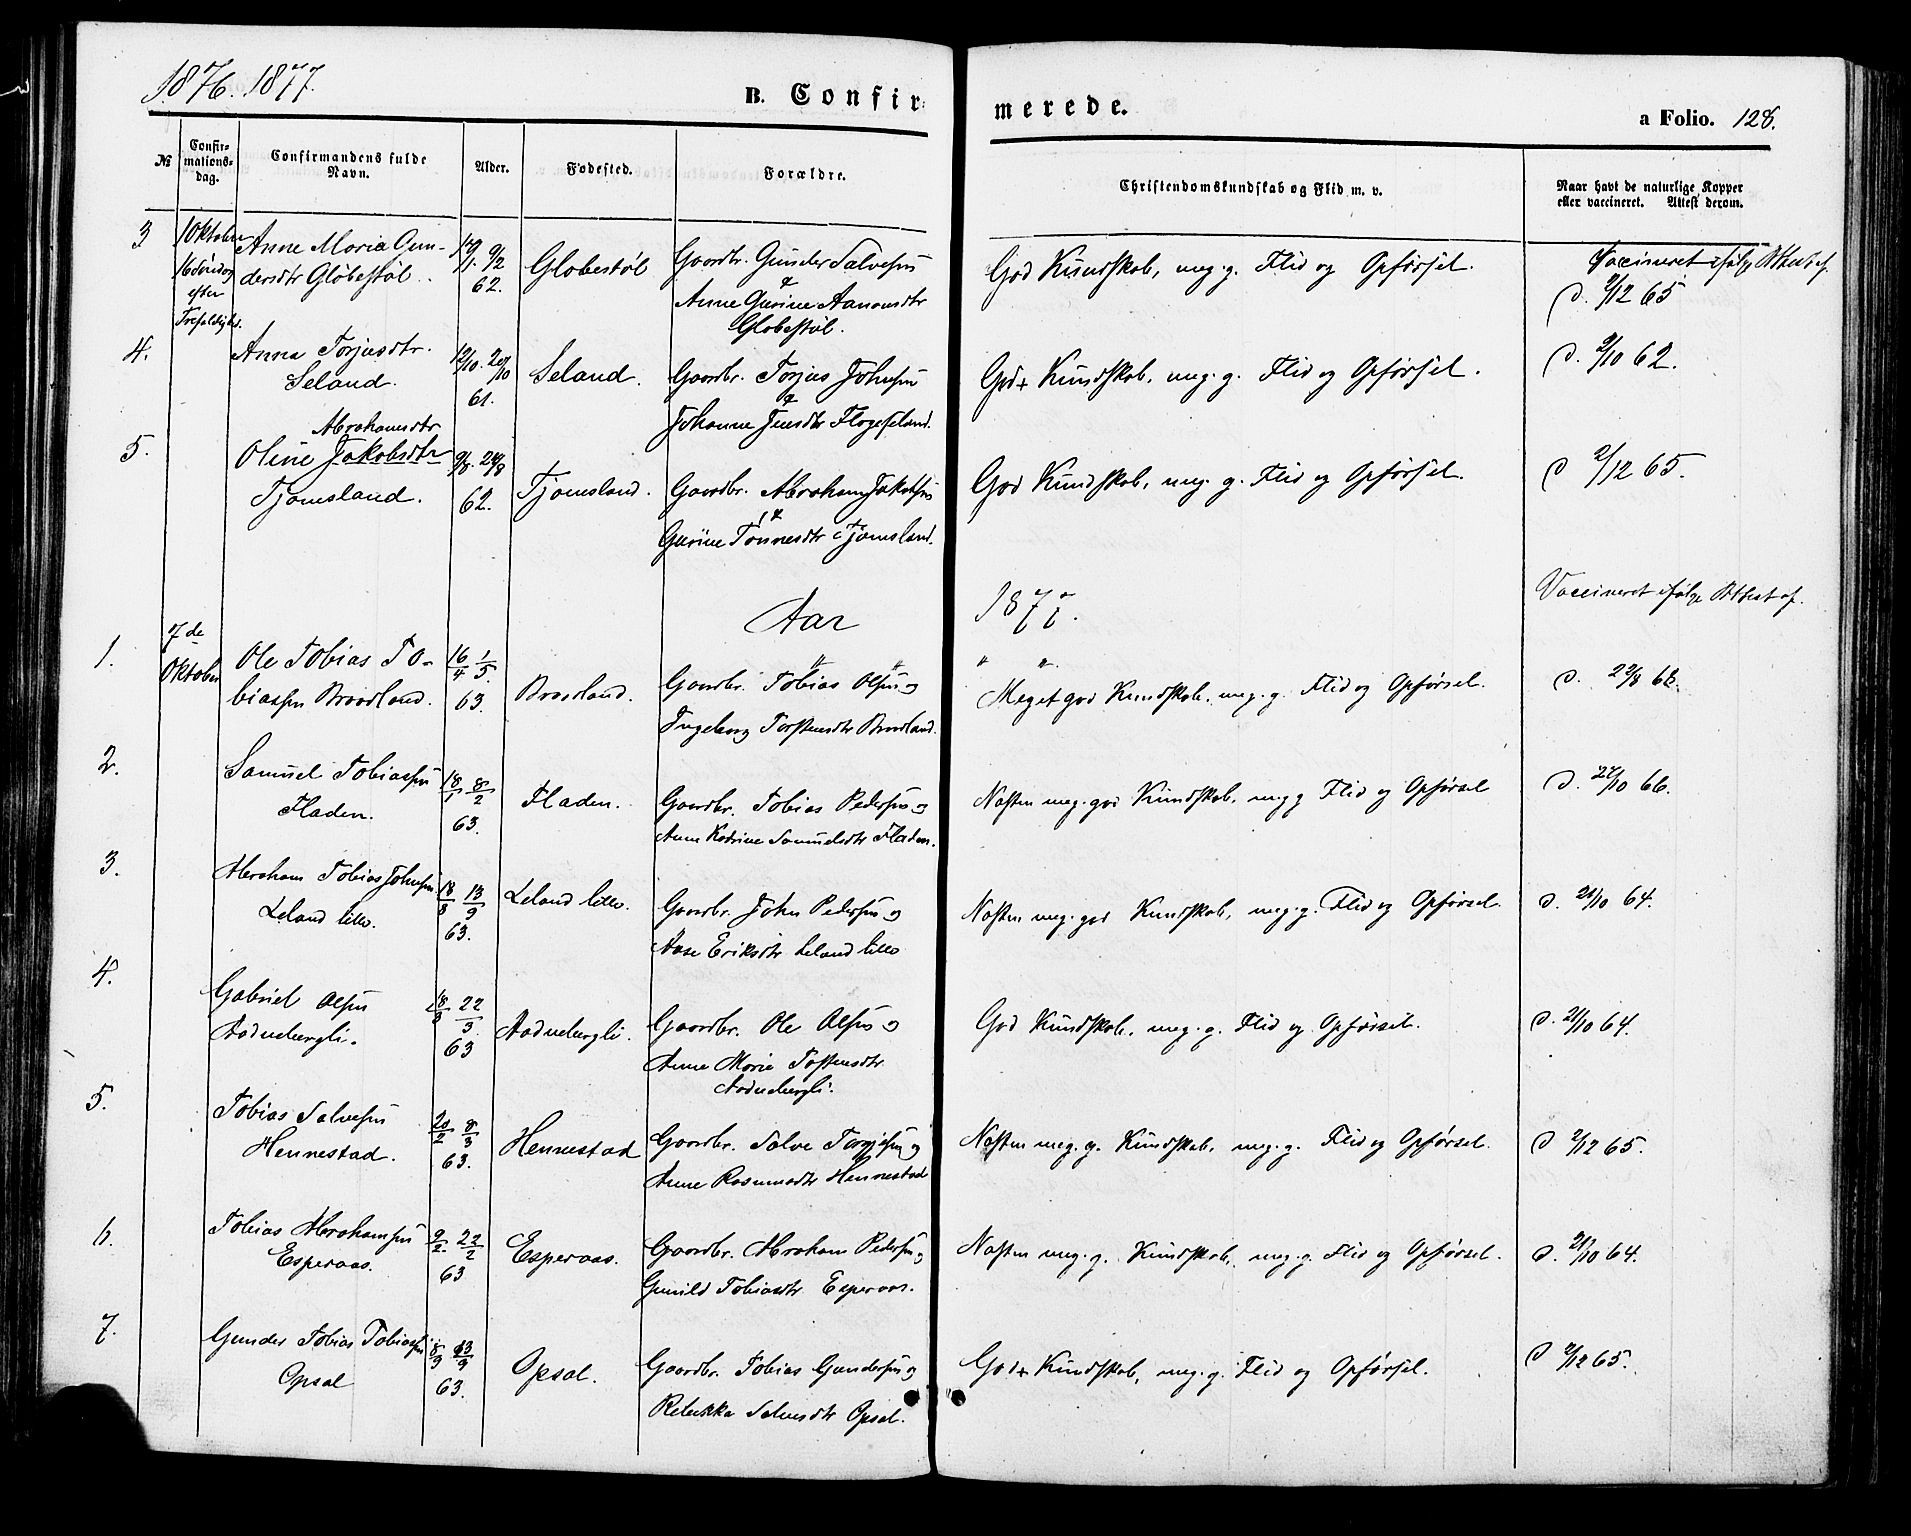 1876. 1877.
B. Confirmerede.
a Folio. 128.
№
Confirmationsdag.
Confirmandens fulde Navn.
Alder.
Fødested.
Forældre.
Christendomskundskab og Flid m. v.
Naar havt de naturlige Kopper eller vaccineret. Attest derom.
3 1 Oktober 16 Søndag efter Trefoldighd.
Anne Maria Gundersdtr Gløbestøl.
9/2 62.
Globestøl
Gaardbr. Gunder Salvesen & Anne Gurine Aanonsdtr Globestøl.
God Kundskab, meg. g. Flid og Opførsel.
Vaccineret ifølge Attest af d. 2/12 65
4.
Anna Torjusdtr. Seland.
12/10. 20/10 61.
Seland.
Gaardbr. Torjus Johnsen & Johanne Jensdtr Flogeseland.
God+ Kundskab, meg. g. Flid og Opførsel.
d. 2/10 62.
5.
Abrahamsdtr
Oline Jakobsdtr Tjomsland.
9/8. 24/8 62.
Tjomsland.
Gaardbr. Abraham Jakobsen & Gurine Tønnesdtr Tjomsland.
God Kundskab, meg. g. Flid og Opførsel.
d 2/12 65.
Aar 1877.
Vaccineret ifølge Attest af.
1. 7de Oktober
Ole Tobias Tobiassen Braadland.
16/4 1/5. 63.
Braadland.
Gaardbr. Tobias Olsen og Ingeborg Torstensdtr Braadland.
Meget god Kundskab, meg. g. Flid og Opførsel.
d. 22/8 68.
2.
Samuel Tobiassen Fladen.
18/1 8/2 63.
Fladen.
Gaardbr. Tobias Pedersen og Anne Katrine Samuelsdtr Fladen.
Næsten meg. god Kundskab, meg g Flid og Opførsel
d. 27/10 66.
3.
Abraham Tobias Johnsen Leland lille.
18/8 13/9 63.
Leland lille.
Gaardbr. John Pedersen og Aase Eriksdtr Leland lille
Næsten meg. god Kundskab, meg. g. Flid og Opførsel.
d. 21/10 64.
4.
Gabriel Olsen Aadnebergli.
18/3 22/3. 63
Aadnebergli.
Gaardbr. Ole Olsen og Anne Marie Tostensdtr Aadnebergli.
God Kundskab, meg. g. Flid og Opførsel.
d. 21/10 64.
5.
Tobias Salvesen Hennestad.
20/2 8/3 63.
Hennestad
Gaardbr. Salve Torgjusen og Anne Rasmusdtr Hennestad
Næsten meg. g. Kundskab, meg. g. Flid og Opførsel.
d 2/12 65.
6.
Tobias Abrahamsen Esperaas.
9/2 22/2 63
Esperaas.
Gaardbr. Abraham Pedersen og Gunild Tobiasdtr Esperaas.
Næsten meg. g. Kundskab, meg. g. Flid og Opførsel.
d. 21/10 64.
7.
Gunder Tobias Tobiassen Opsal
8/3 23/3 63.
Opsal.
Gaardbr. Tobias Gundersen og Rebekka Salvesdtr Opsal.
God+ Kundskab, meg. g. Flid og Opførsel.
d 2/12 65.